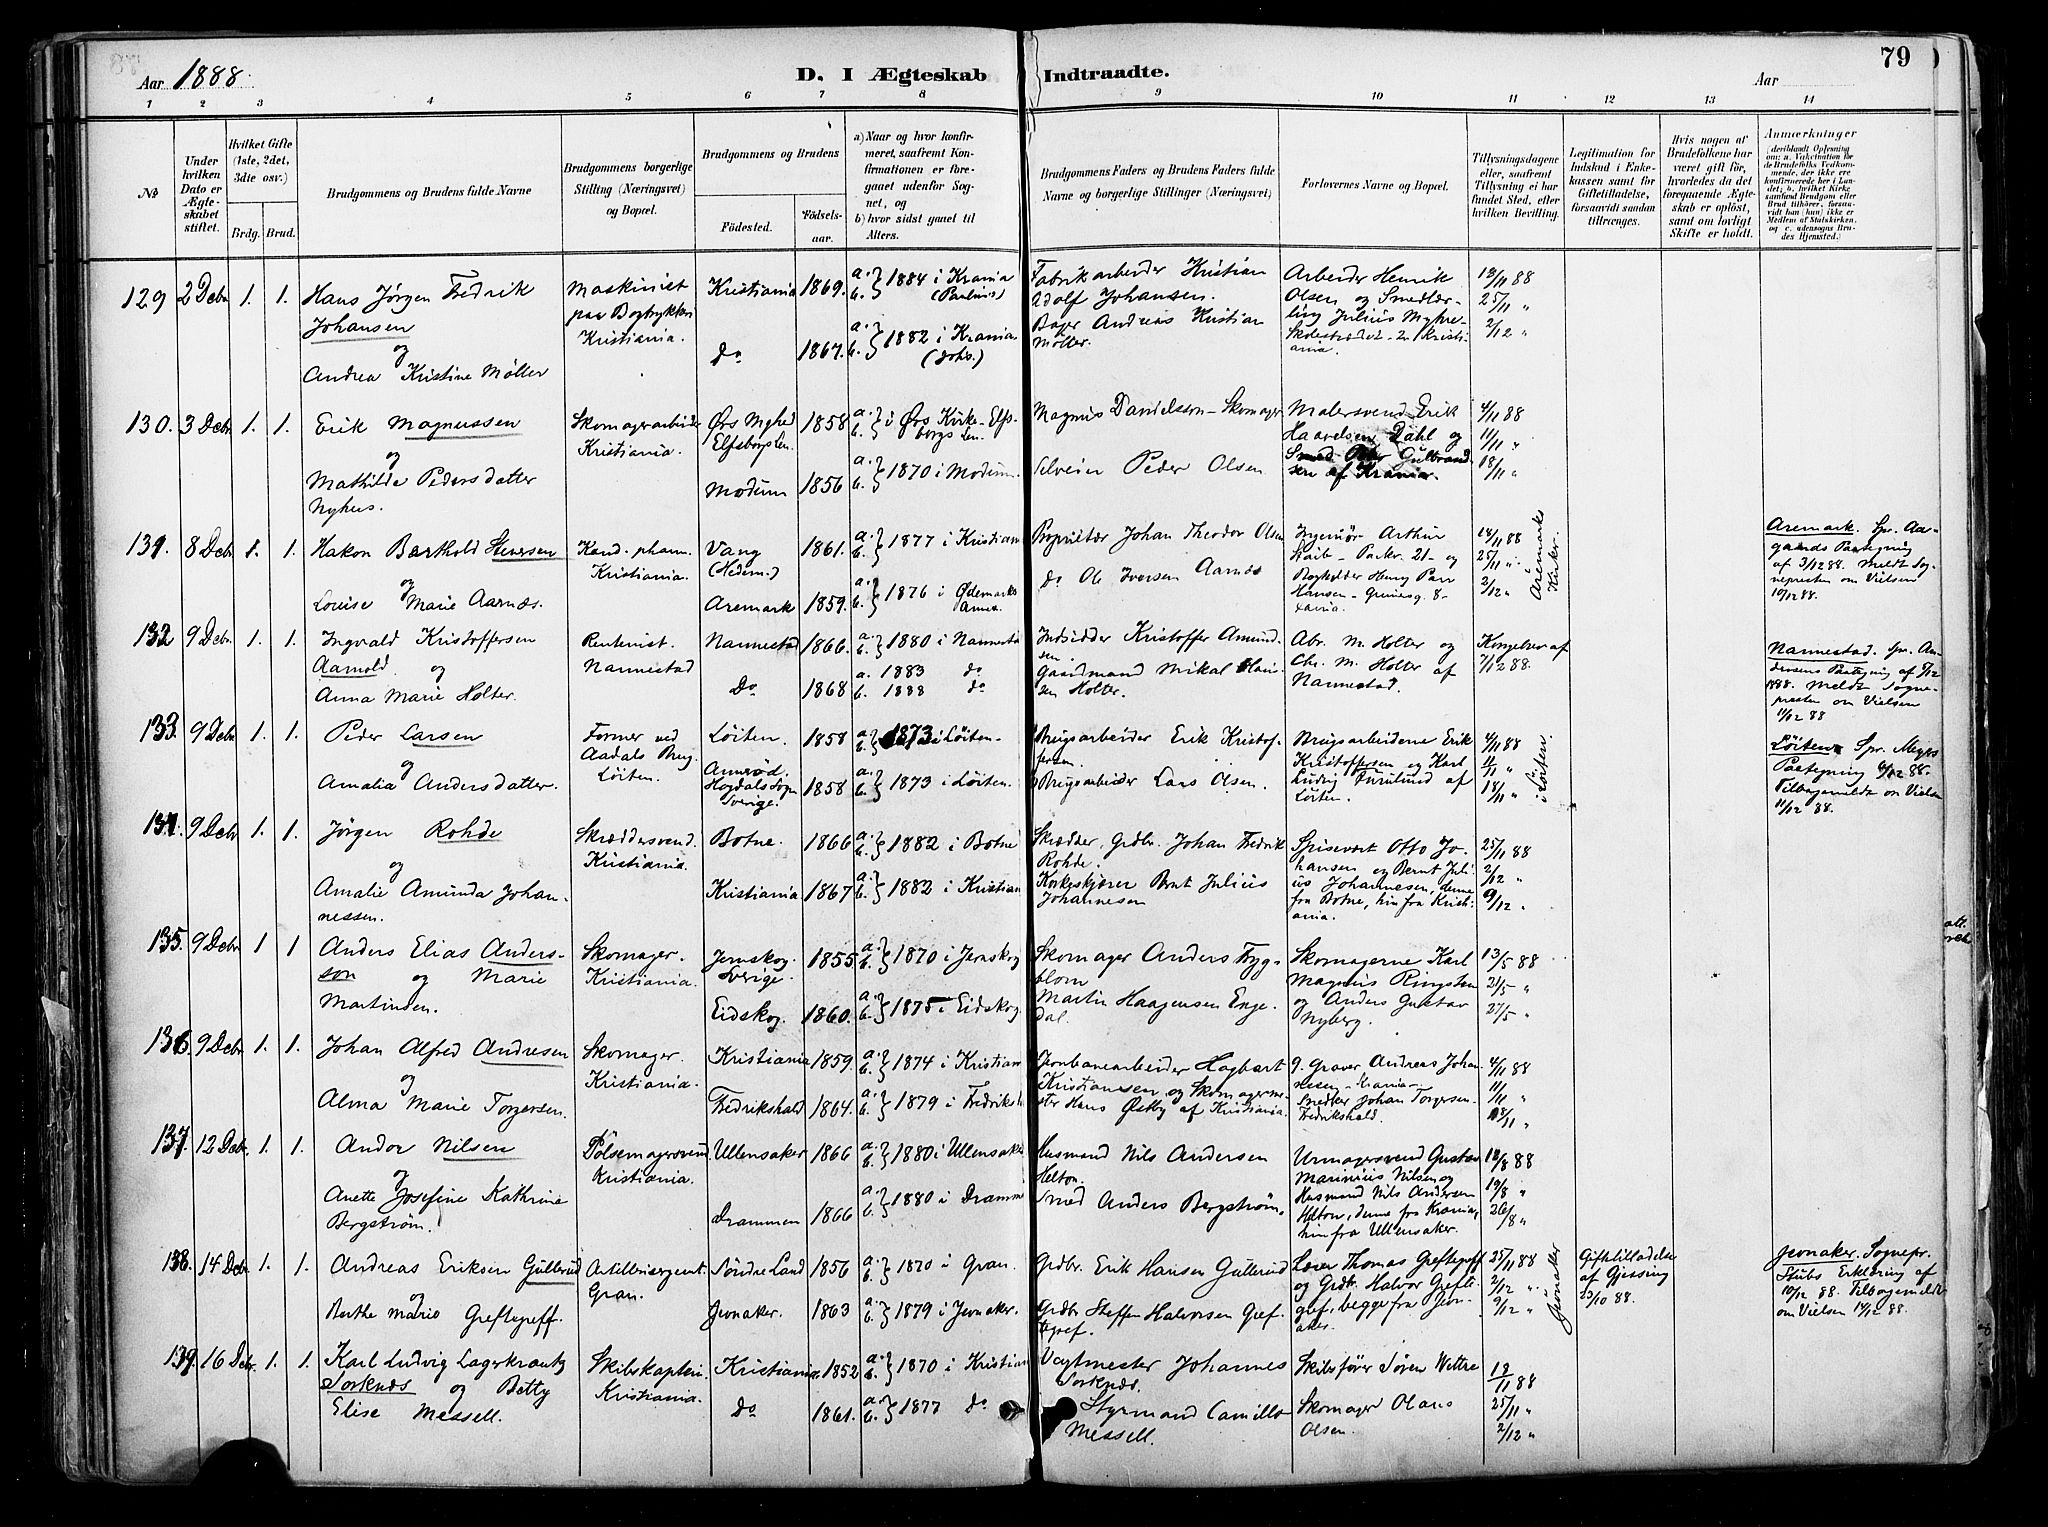 Aar 1888.
D. I Ægteskab Indtraadte.
Aar
79
1 2 3 4 5 6 7 8 9 10 11 12 13 14
No
Under hvilken Dato er Ægteskabet stiftet.
Hvilket Gifte (1ste, 2det, 3die osv.)
Brdg. Brud.
Brudgommens og Brudens fulde Navne
Brudgommens borgerlige Stilling (Næringsvei) og Bopæl.
Brudgommens og Brudens
Födested. Födsels-aar.
a) Naar og hvor konfirmeret, saafremt Konfirmationen er foregaaet udenfor Sognet, og
b) hvor sidst gaaet til Alters.
Brudgommens Faders og Brudens Faders fulde Navne og borgerlige Stillinger (Næringsvei)
Forlovernes Navne og Bopæl.
Tillysningsdagene eller, saafremt Tillysning ei har fundet Sted, efter hvilken Bevilling.
Legitimation for Indskud i Enkekassen samt for Giftetilladelse, forsaavidt saadan tiltrænges.
Hvis nogen af Brudefolkene har været gift før, hvorledes da det foregaaende Ægteskab er oplöst, samt om lovligt Skifte er holdt.
Anmærkninger
129 2 Debr. 1. 1. Hans Jørgen Fredrik Johansen og Andrea Kristine Møller
Maskinist paa Bogtrykkeri Kristiania.
Kristiania 1869. a. b. } 1884 i Krania (Paulus)
Do 1867. a. b. } 1882 i Krania (Johs.)
Fabrikarbeider Kristian Adolf Johansen.
Bager Andreas Kristian Møller.
Arbeider Henrik Olsen og Smedlærling Julius Myhre - Skolestrædet - 2 Kristiania.
18/11 88
25/11 "
2/12 "
130. 3 Debr. 1. 1. Erik Magnussen og Mathilde Pedersdatter Nyhus.
Skomagerarbeider Kristiania.
Ørs Mghed Elfsborgs Len 1858 a. b. } i Ørs Kirke - Elfsborgs Len.
Modum 1856 a. b. } 1870 i Modum.
Magnus Danielsson - Skomager
Selveier Peder Olsen
Malersvend Erik Haavelsen Dahl og Smed Peter Gulbrandsen af Krania.
4/11 88
11/11 "
18/11 "
131. 8 Debr. 1. 1. Hakon Barthold Steversen og Louise Marie Aarnæs.
Kand. pharm. Kristiania.
Vang (Hedem.) 1861. a. b. } 1877 i Kristiania
Aremark 1859. a. b. } 1876 i Ødemarks Annex.
Proprietær Johan Theodor Olsen
do Ole Iversen Aarnæs
Ingeniør Arthur - Parkv. 21 - og Bogholder Henry Parr Hansen - Grünersg. 8 - Xania.
14/11 88
25/11 "
2/12 "
Aremarks Kirke.
Aremark. Spr. Aagaards Paategning af 3/12 88. Meldt Sognepresten om Vielsen 10/12 88.
132 9 Debr. 1. 1. Ingvald Kristoffersen Aarnold og Anna Marie Holter.
Rentenist. Nannestad
Nannestad 1866. a. b. } 1880 i Nannestad
Do 1868 a. 1883 do b. 1888 do
Indsidder Kristoffer Amundsen.
Gaardmand Mikal Hansen Holter.
Abr. M. Holter og Chr. M. Holter af Nannestad.
Kongebrev af 7/12 88.
Nannestad. Spr. Andersens Paategning af 7/12 1888. Meldt Sognepresten om Vielsen 11/12 88
133. 9 Debr. 1. 1. Peder Larsen og Amalia Andersdatter.
Former ved Aadals Brug Løiten.
Løiten. 1858 a. b. } 1873 i Løiten -
Amnrød. Hogdals Sogn Sverige. 1858 a. b. } 1873 i Løiten.
Brugsarbeider Erik Kristoffersen.
Brugsarbeider Lars Olsen.
Brugsarbeiderne Erik Kristoffersen og Karl Ludvig Furulund af Løiten.
4/11 88
11/11 "
18/11 "
i Løiten.
Løiten. Spr. Meyers Paategning 6/12 88. Tilbagemeldt om Vielsen 11/12 88.
134. 9 Debr. 1. 1. Jørgen Rohde og Amalie Amunda Johannessen.
Skræddersvend. Kristiania.
Botne. 1866 a. b. } 1882 i Botne
Kristiania 1867 a. b. } 1882 i Kristiania
Skrædder, Grdbr. Johan Fredrik Rohde.
Korkeskjærer Bernt Julius Johannesen
Spisevært Otto Johansen og Bernt Julius Johannesen, denne fra Botne, hin fra Kristiania.
25/11 88
2/12 "
9/12 "
135. 9 Debr. 1 1 Anders Elias Andersson og Marie Martinsen.
Skomager. Kristiania.
Jernskog. Sverige. 1855 a. b. } 1870 i Jernskog
Eidskog. 1860. a. b. } 1875 i Eidskog.
Skomager Anders Tygblom
Martin Haagensen Engedal.
Skomagerne Karl Magnus Ringsten og Anders Gustav Nyberg.
13/5 88
21/5 "
27/5 "
136. 9 Debr. 1. 1. Johan Alfred Andresen og Alma Marie Torgersen.
Skomager. Kristiania.
Kristiania 1859. a. b. } 1874 i Kristiania
Fredrikshald 1864. a. b. } 1879 i Fredriksh.
Jernbanearbeider Hagbart Kristiansen og Skomagermester Hans Østby af Kristiania.
g. Graver Andreas Johannesen - Krania - Snedker Johan Torgersen - Fredrikshald.
4/11 88
11/11 "
18/11 "
137. 12 Debr. 1. 1. Andor Nilsen og Anette Josefine Kathrine Bergstrøm.
Pølsemagersvend. Kristiania.
Ullensaker 1866 a. b. } 1880 i Ullensaker
Drammen 1866 a. b. } 1880 i Dramm.
Husmand Nils Andersen Helton.
Smed Anders Bergstrøm.
Urmagersvend Gustav Marinius Nilsen og Husmand Nils Andersen Helton, denne fra Krania, hin fra Ullensaker.
12/8 88
19/8 "
26/8 "
138. 14 Debr. 1. 1. Andreas Eriksen Gullerud og Berthe Marie Greftegreff.
Artillerisergent. Gran.
Søndre Land 1856 a. b. } 1870 i Gran.
Jevnaker. 1863 a. b. } 1879 i Jevnaker.
Grdbr. Erik Hansen Gullerud
Grdbr. Steffen Halvorsen Greftegref.
Lærer Thomas Greftegreff og Grdbr. Halvor Greftegref, begge fra Jevnaker.
25/11 88
2/12 "
9/12 "
Jevnaker
Giftetilladelse af Gjessing 23/10 88.
Jevnaker. Sognepr. Stubs Erklæring af 10/12 88. Tilbagemeldt om Vielsen 14/12 88.
139. 16 Debr. 1. 1. Karl Ludvig Lagerkrantz Torknæs og Betty Elise Messell.
Skibskaptein Kristiania.
Kristiania 1852 a. b. } 1870 i Kristian
Do 1861. a. b. } 1877 do
Vagtmester Johannes Torknæs.
Styrmand Camillo Messell.
Skibsfører Søren Wettre
Skomager Olaus Olsen.
18/11 88
25/11 "
2/12 "